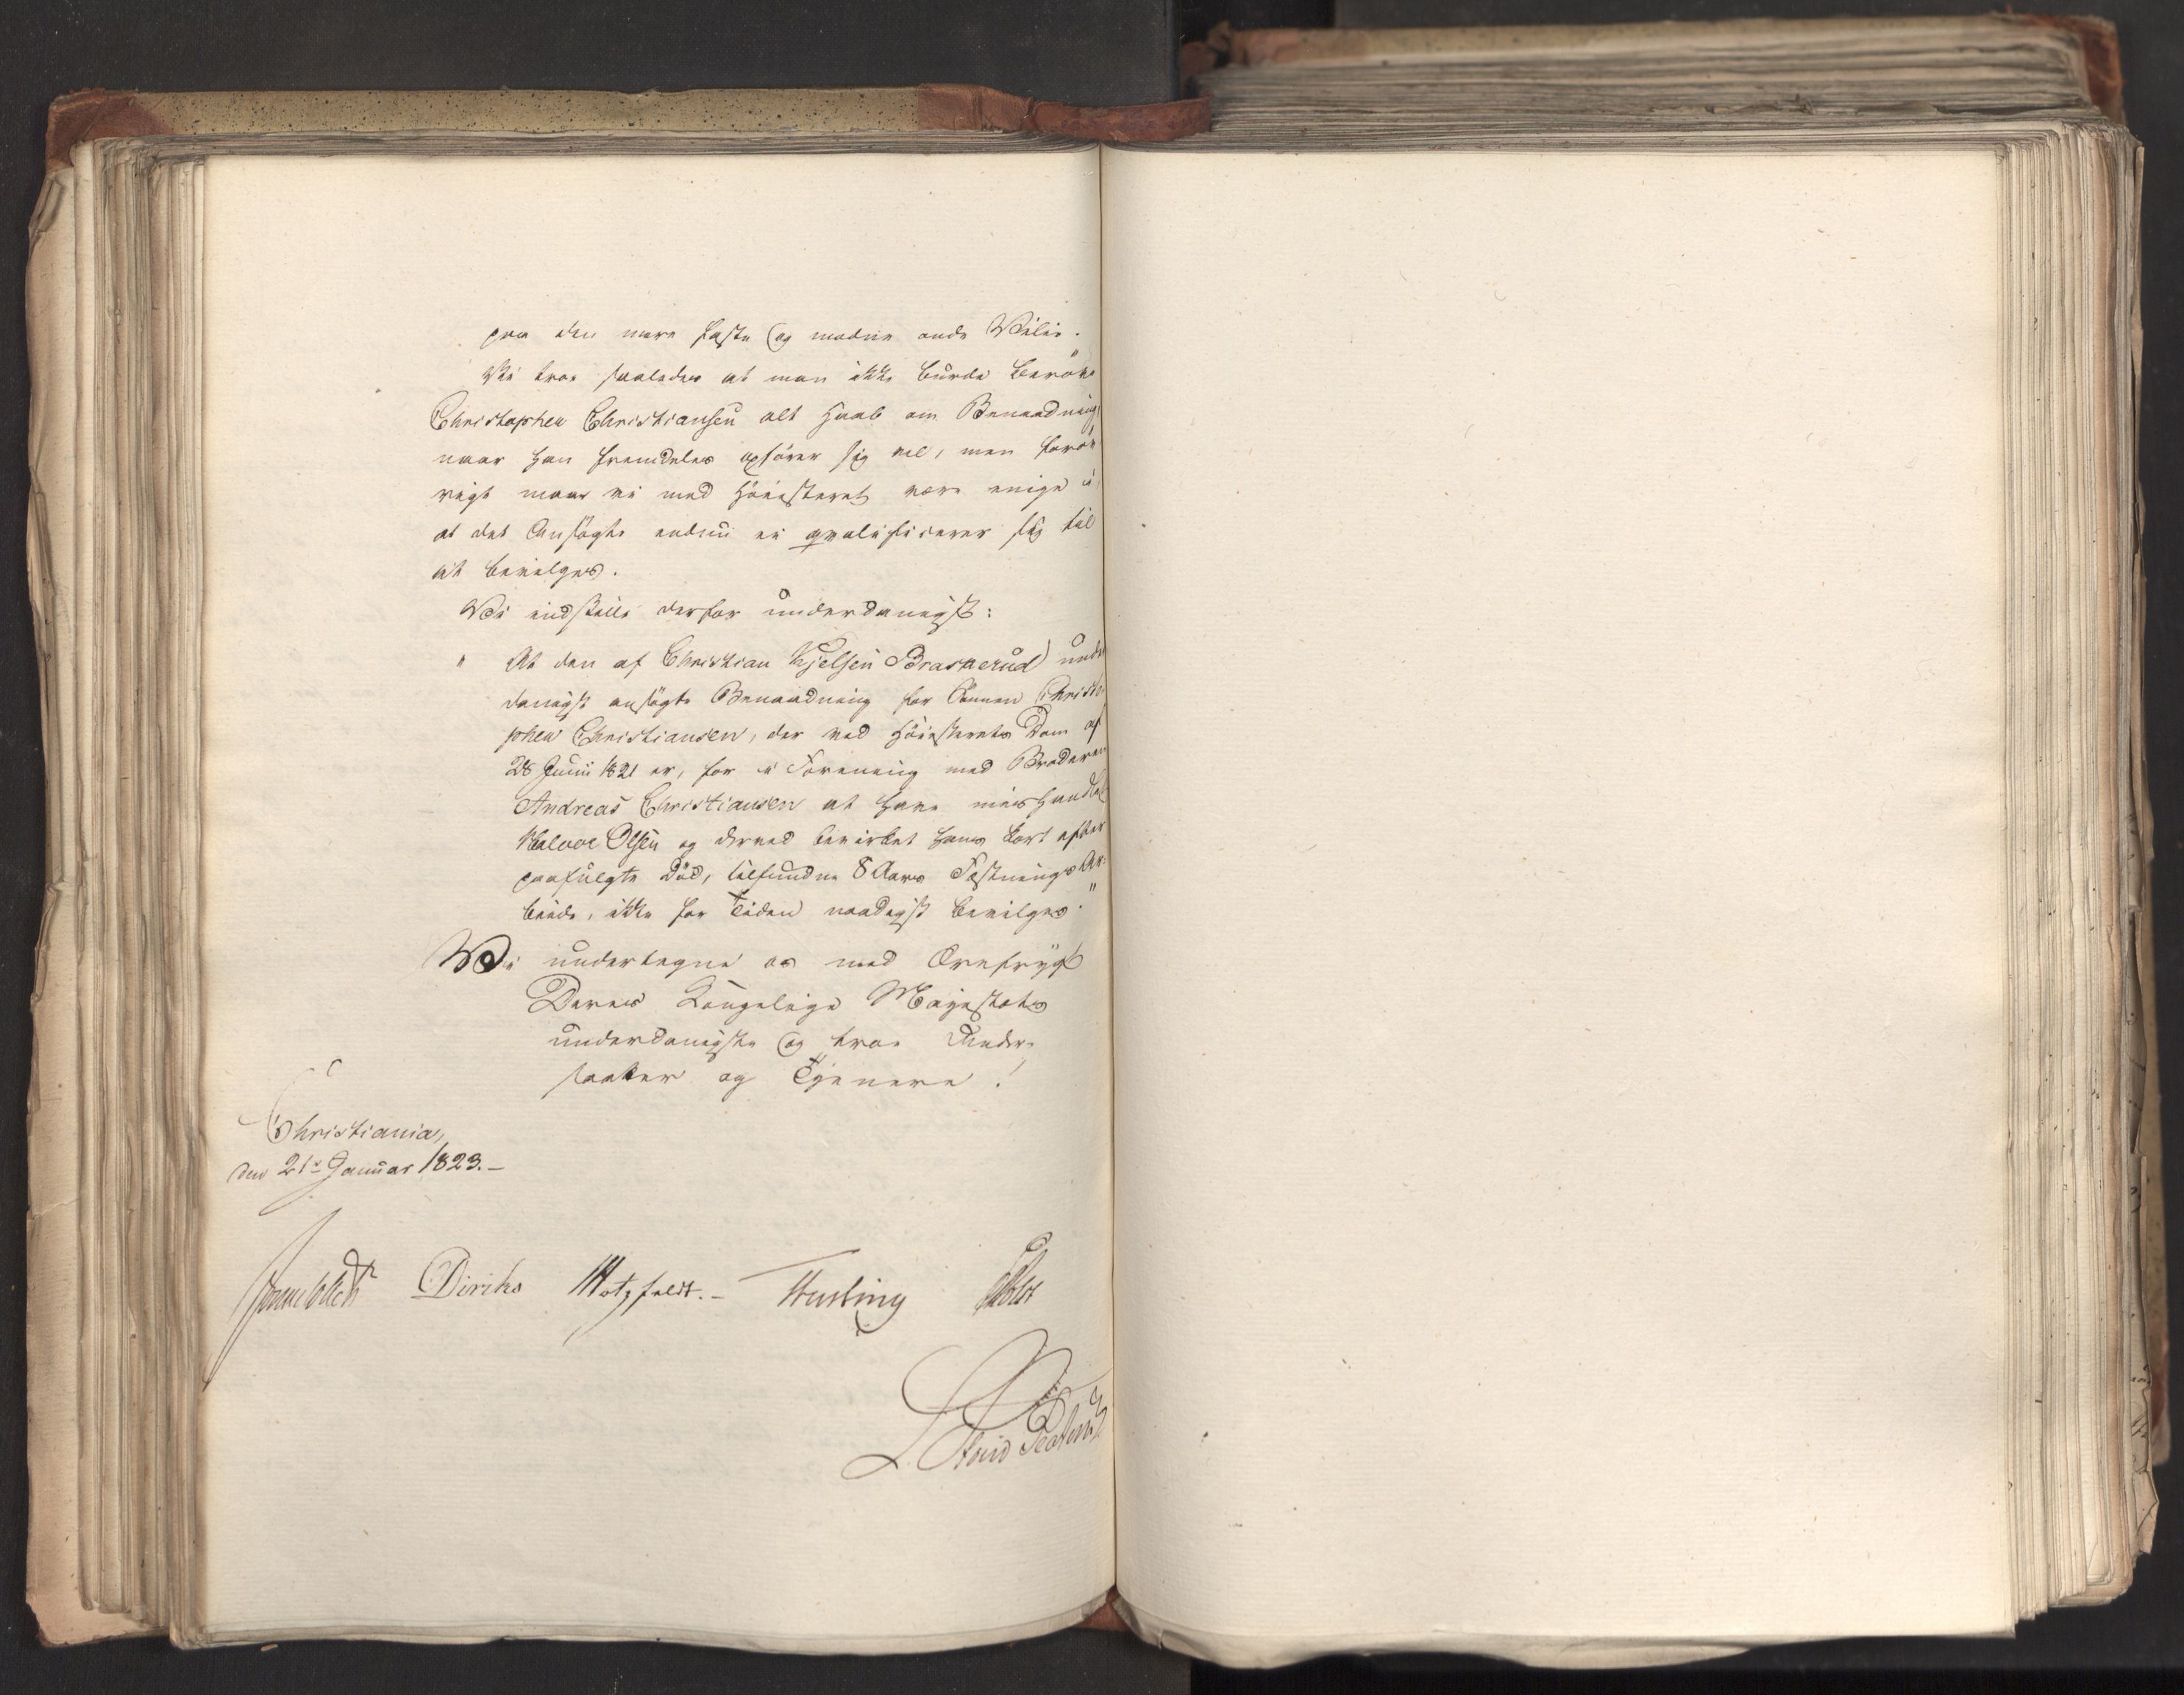 paa den mere faste og modne onde Villie.
Vi troe saaledes at man ikke burde beröve
Christopher Christiansen alt Haab om Benaadning,
naar han fremdeles opförer sig vel, men forö
vrigt maae vi med Höiesteret være enige i,
at det Ansögte endnu ei qvalificerer sig til
at bevilges.
Vi indstille derfor underdanigst:
" At den af Christian Kjelsen Braskerud under
danigst ansögte Benaadning for Sönnen Christo
pher Christiansen, der ved Höiesterets Dom af
28 Junii 1821 er, for i Forening med Broderen
Andreas Christiansen at have mishandlet
Halvor Olsen og derved bevirket hans kort efter
paafulgte Död, tilfunden 8 Aars Fæstnings Ar-
beide, ikke for Tiden naadigst bevilges."
Vi undertegne os med Ærefrygt
Deres Kongelige Majestæts
underdanigste og troe Under-
saatter og Tjenere!
Christiania,
den 21de Januar 1823.-
Sommerhielm Diriks Motzfeldt.- Fasting